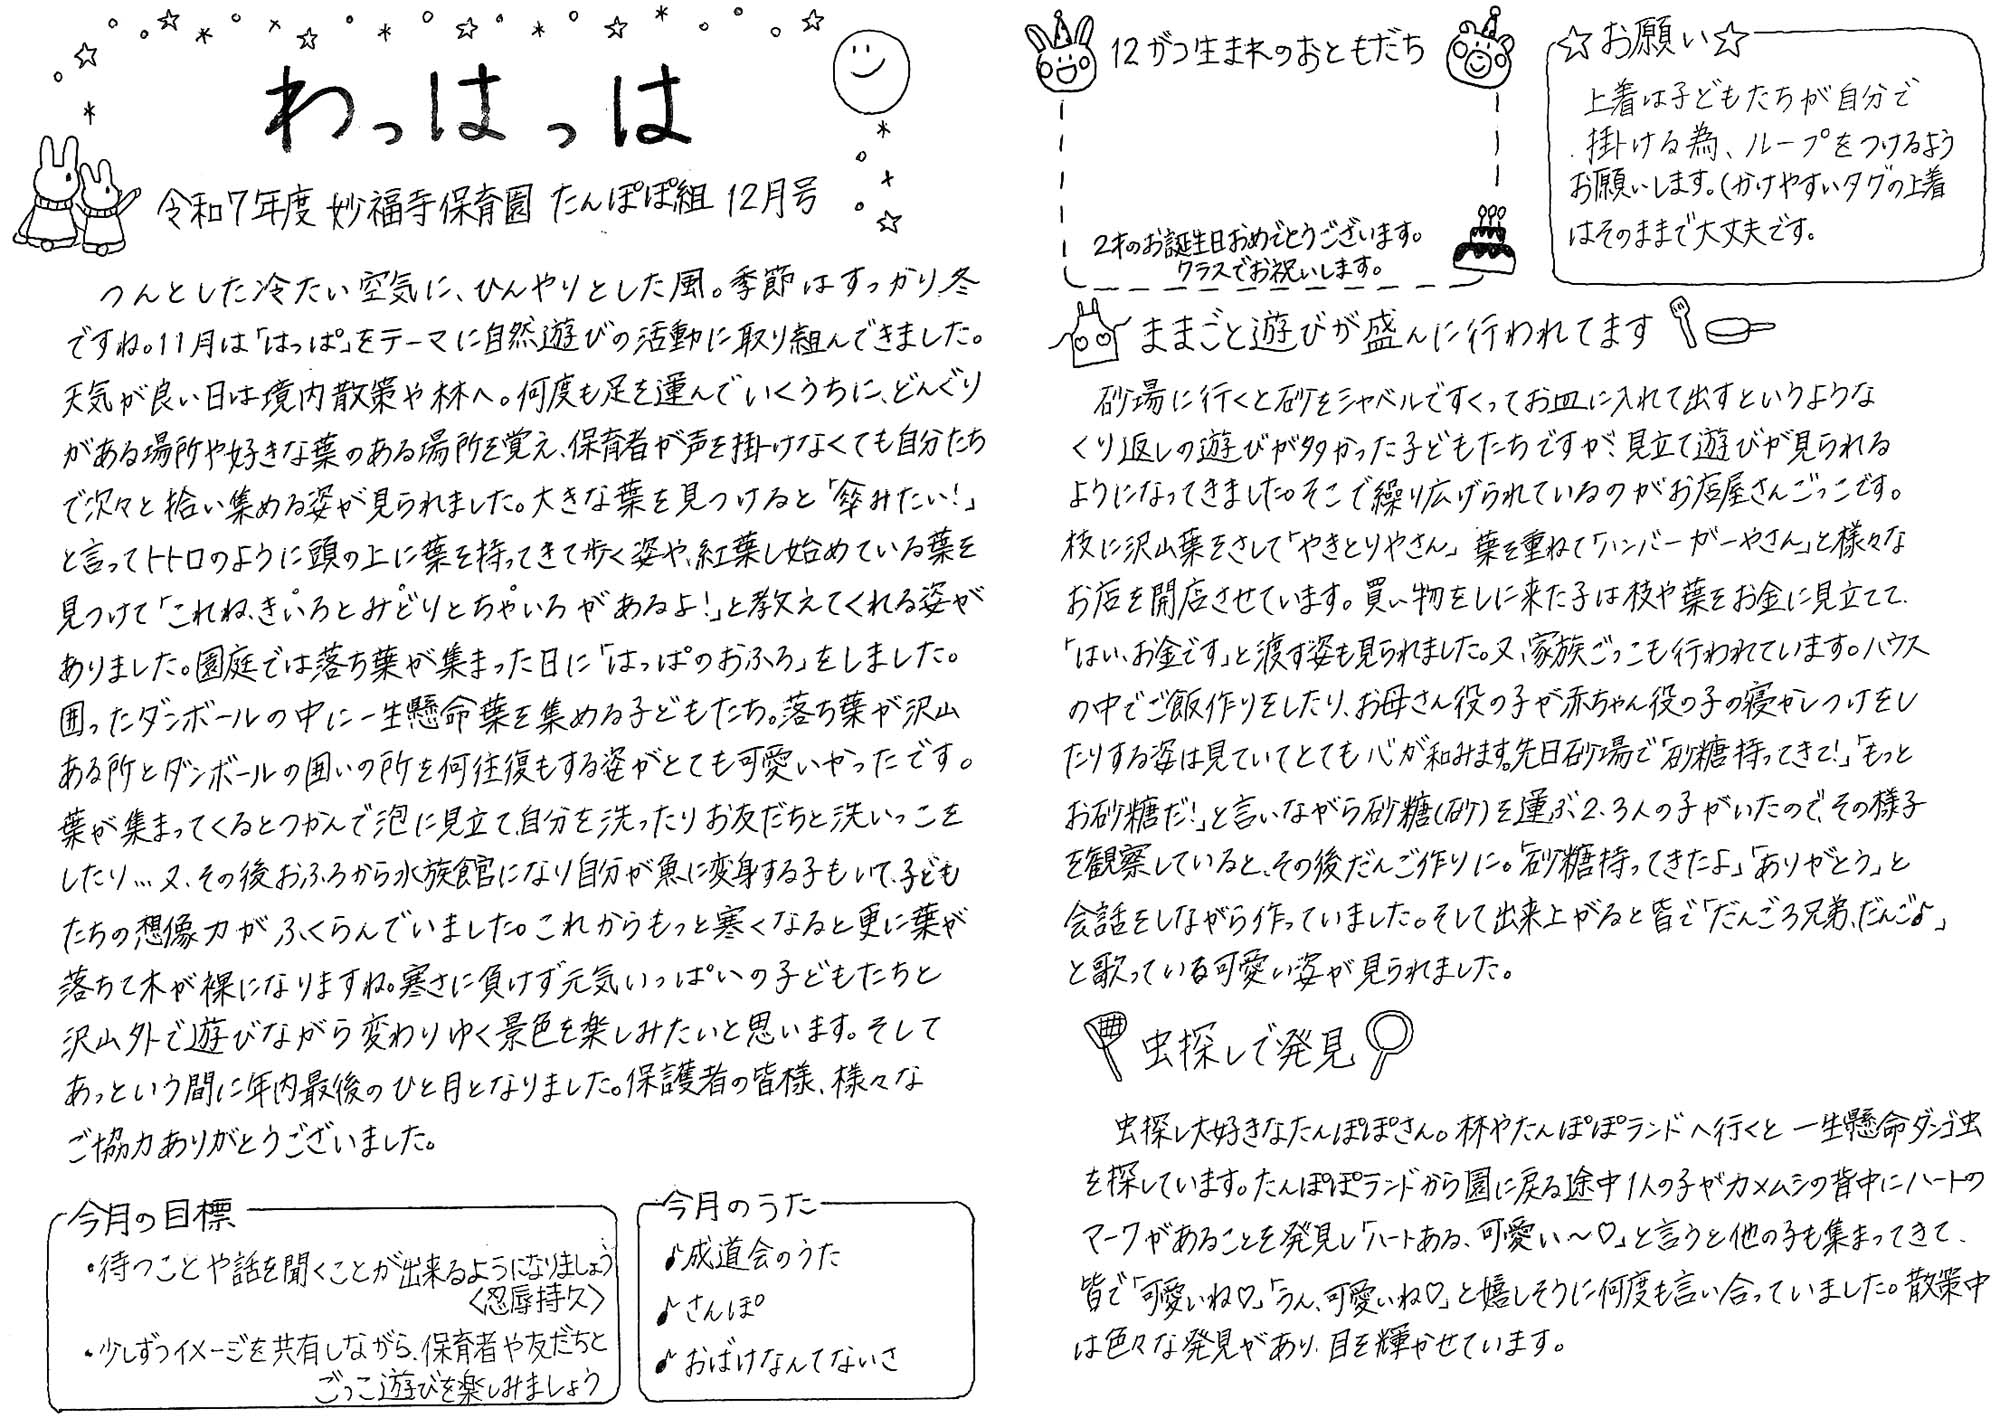 わっはっは
令和7年度 妙福寺保育園 たんぽぽ組 12月号
つんとした冷たい空気に、ひんやりとした風。季節はすっかり冬
ですね。11月は「はっぱ」をテーマに自然遊びの活動に取り組んできました。
天気が良い日は境内散策や林へ。何度も足を運んでいくうちに、どんぐり
がある場所や好きな葉のある場所を覚え、保育者が声を掛けなくても自分たち
で次々と拾い集める姿が見られました。大きな葉を見つけると「傘みたい!」
と言ってトトロのように頭の上に葉を持ってきて歩く姿や、紅葉し始めている葉を
見つけて「これね、きいろとみどりとちゃいろがあるよ!」と教えてくれる姿が
ありました。園庭では落ち葉が集まった日に「はっぱのおふろ」をしました。
囲ったダンボールの中に一生懸命葉を集める子どもたち。落ち葉が沢山
ある所とダンボールの囲いの所を何往復もする姿がとても可愛いかったです。
葉が集まってくるとつかんで泡に見立て、自分を洗ったりお友だちと洗いっこを
したり…又、その後おふろから水族館になり自分が魚に変身する子もいて、子ども
たちの想像力がふくらんでいました。これからもっと寒くなると更に葉が
落ちて木が裸になりますね。寒さに負けず元気いっぱいの子どもたちと
沢山外で遊びながら変わりゆく景色を楽しみたいと思います。そして
あっという間に年内最後のひと月となりました。保護者の皆様、様々な
ご協力ありがとうございました。
今月の目標
・待つことや話を聞くことが出来るようになりましょう
〈忍辱持久〉
・少しずつイメージを共有しながら、保育者や友だちと
ごっこ遊びを楽しみましょう
今月のうた
♪成道会のうた
♪さんぽ
♪おばけなんてないさ
12がつ生まれのおともだち
2才のお誕生日おめでとうございます。
クラスでお祝いします。
☆お願い☆
上着は子どもたちが自分で
掛ける為、ループをつけるよう
お願いします。(かけやすいタグの上着
はそのままで大丈夫です。
ままごと遊びが盛んに行われてます
砂場に行くと砂をシャベルですくってお皿に入れて出すというような
くり返しの遊びが多かった子どもたちですが、見立て遊びが見られる
ようになってきました。そこで繰り広げられているのがお店屋さんごっこです。
枝に沢山葉をさして「やきとりやさん」葉を重ねて「ハンバーガーやさん」と様々な
お店を開店させています。買い物をしに来た子は枝や葉をお金に見立てて、
「はい、お金です」と渡す姿も見られました。又、家族ごっこも行われています。ハウス
の中でご飯作りをしたり、お母さん役の子が赤ちゃん役の子の寝かしつけをし
たりする姿は見ていてとても心が和みます。先日砂場で「砂糖持ってきて!」「もっと
お砂糖だ!」と言いながら砂糖(砂)を運ぶ2、3人の子がいたので、その様子
を観察していると、その後だんご作りに。「砂糖持ってきたよ」「ありがとう」と
会話をしながら作っていました。そして出来上がると皆で「だんご3兄弟、だんご♪」
と歌っている可愛い姿が見られました。
虫探しで発見
虫探し大好きなたんぽぽさん。林やたんぽぽランドへ行くと一生懸命ダンゴ虫
を探しています。たんぽぽランドから園に戻る途中1人の子がカメムシの背中にハートの
マークがあることを発見し「ハートある、可愛い〜♡」と言うと他の子も集まってきて、
皆で「可愛いね♡」「うん、可愛いね♡」と嬉しそうに何度も言い合っていました。散策中
は色々な発見があり、目を輝かせています。